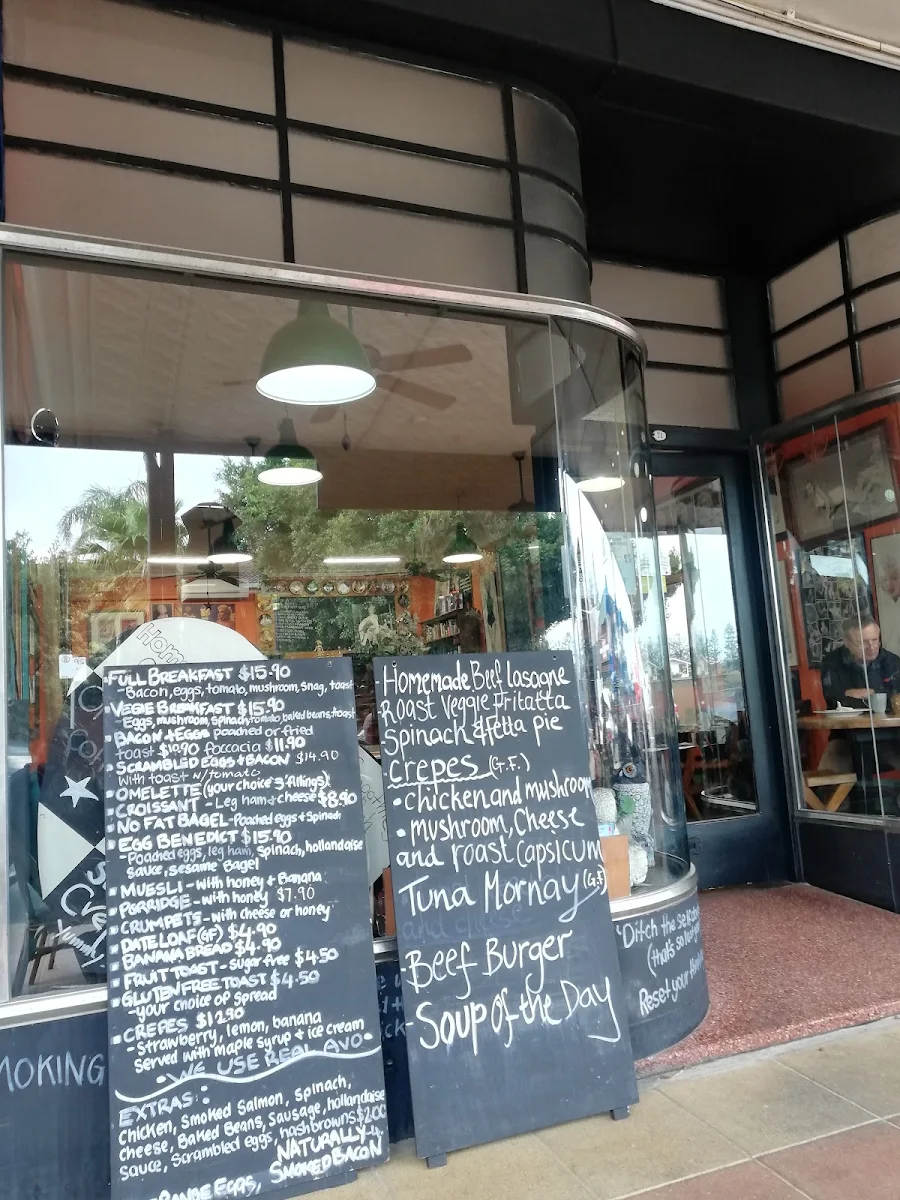 FULL BREAKFAST $15.90
-Bacon, eggs, tomato, mushroom, snag, toast
VEGIE BREAKFAST $15.90
-Eggs, mushroom, spinach, tomato, baked beans, toast
BACON + EGGS poached or fried
toast $10.90 foccacia $11.90
SCRAMBLED EGGS + BACON $14.90
with toast w/tomato
OMELETTE (your choice 3 fillings)
CROISSANT - Leg ham + cheese $8.90
NO FAT BAGEL - Poached eggs + Spinach
EGG BENEDICT $15.90
-Poached eggs, leg ham, spinach, hollandaise
sauce, sesame Bagel
MUESLI - with honey + Banana
PORRIDGE - with honey $7.90
CRUMPETS - with cheese or honey
DATE LOAF (GF) $4.90
BANANA BREAD $4.90
FRUIT TOAST - sugar free $4.50
GLUTEN FREE TOAST $4.50
-your choice of spread
CREPES $12.90
-Strawberry, lemon, banana
served with maple syrup + ice cream
-WE USE REAL AVO-
EXTRAS:
Chicken, Smoked Salmon, Spinach,
Cheese, Baked Beans, Sausage, hollandaise
sauce, Scrambled eggs, hashbrowns $2.00
NATURALLY
EGGS, SMOKED BACON
Homemade Beef lasagne
Roast Veggie Fritatta
Spinach & fetta pie
crepes (G.F.)
• chicken and mushroom
• mushroom, Cheese
and roast capsicum
Tuna Mornay (G.F)
-Beef Burger
-Soup of the Day
"Ditch the
(that's so
Reset your
MOKING
Home